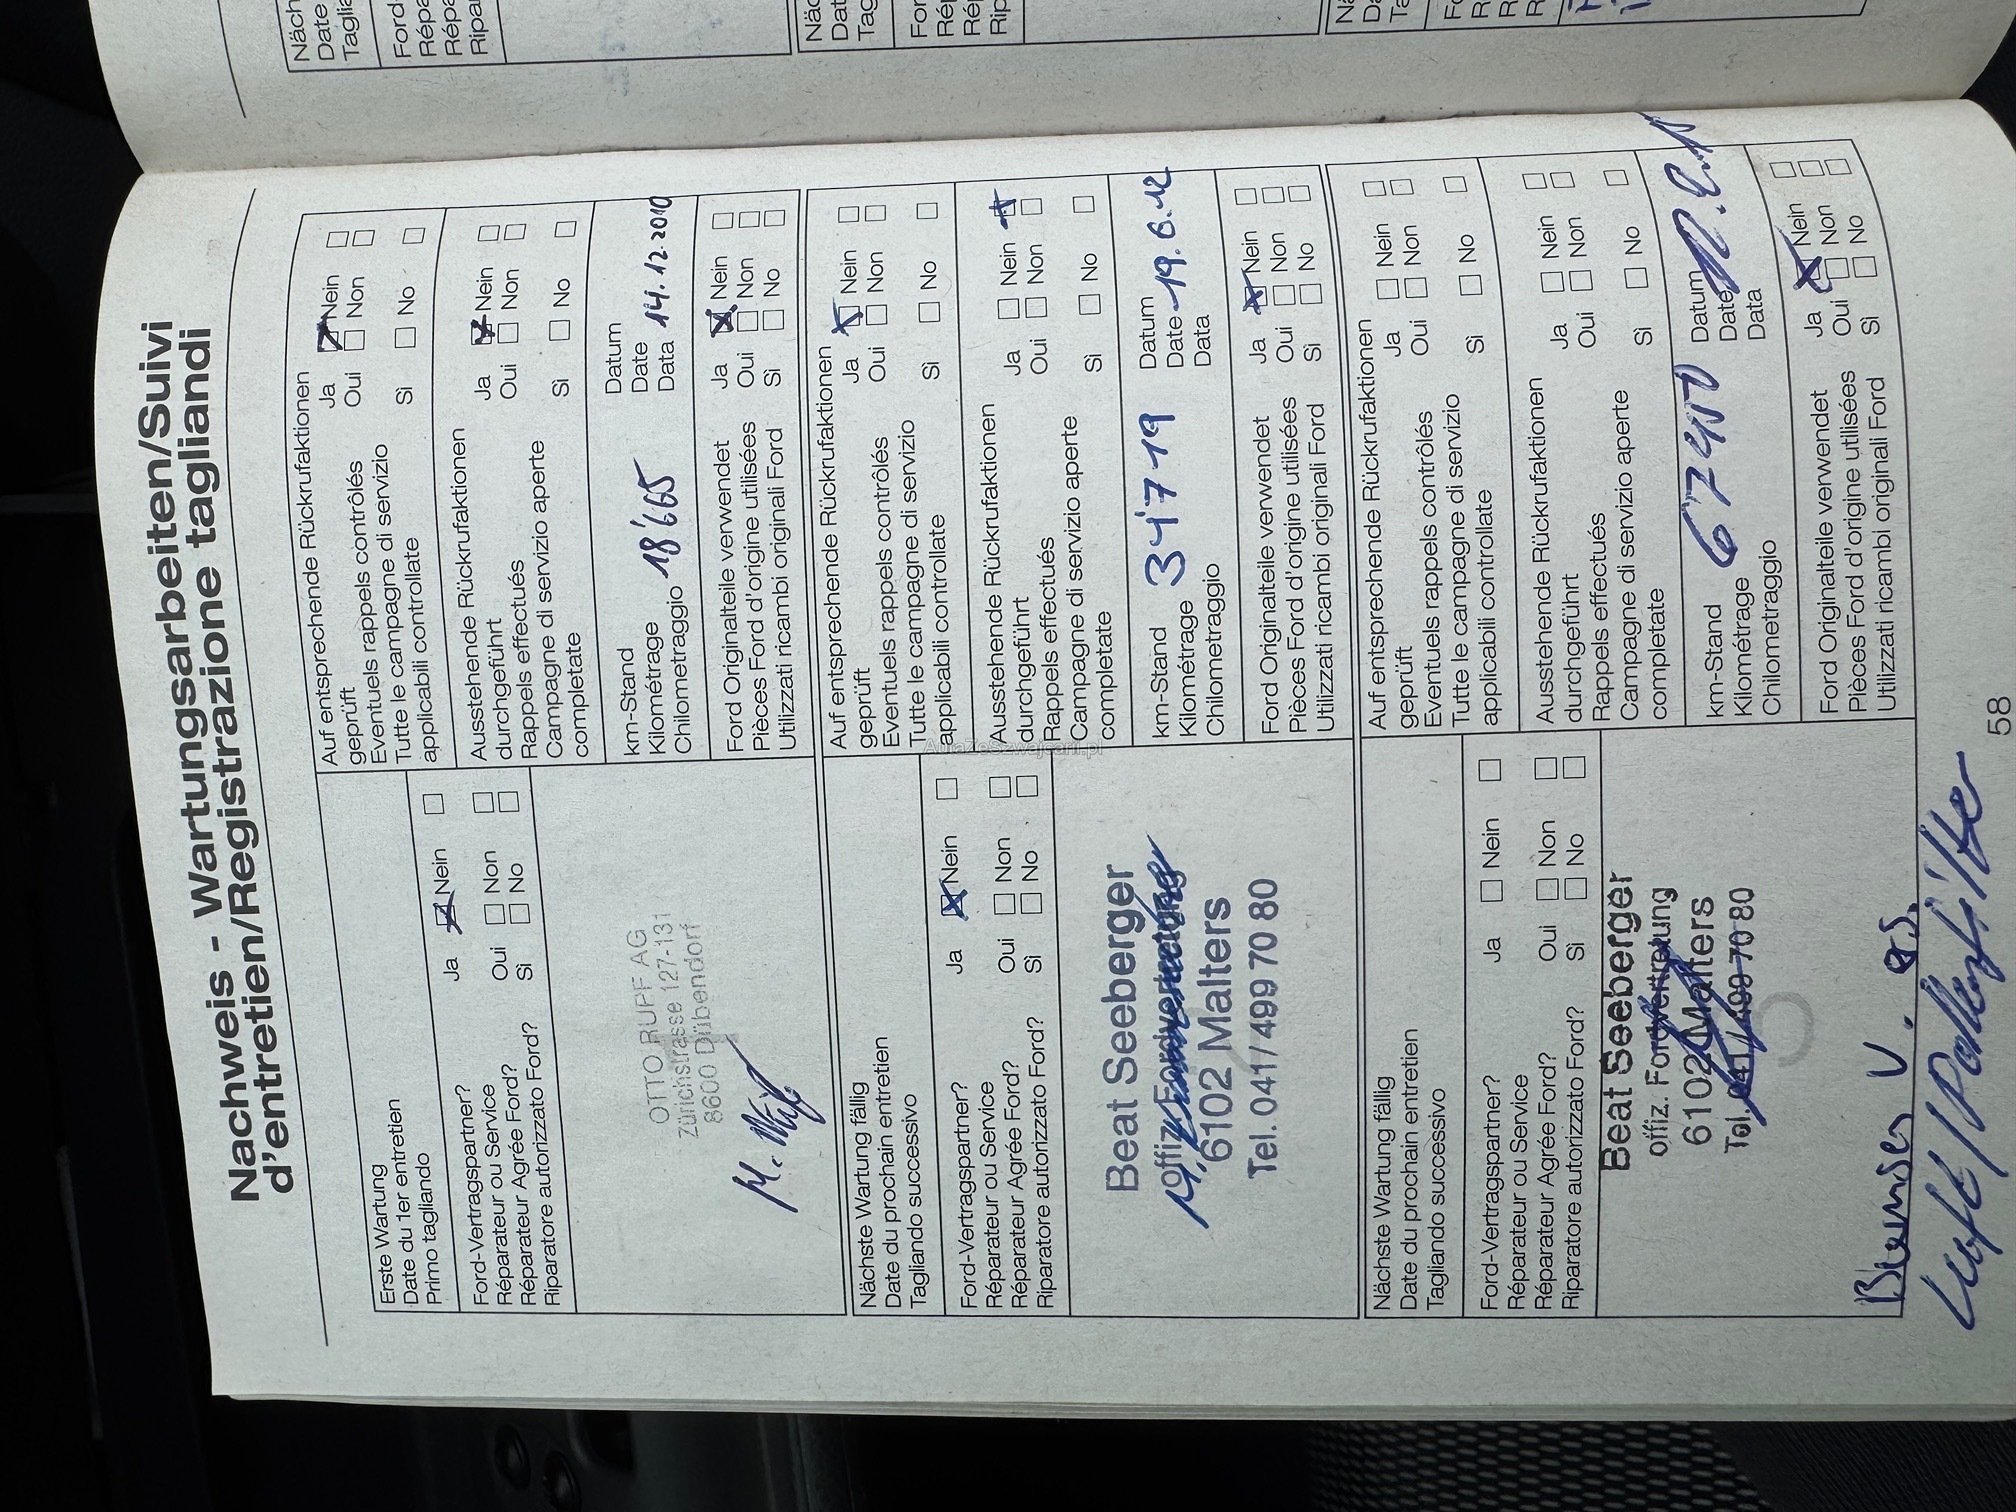 Nachweis - Wartungsarbeiten/Suivi
d'entretien/Registrazione tagliandi
Erste Wartung
Date du 1er entretien
Primo tagliando
Ja Nein
Ford-Vertragspartner?
Réparateur ou Service Oui Non
Réparateur Agrée Ford? Sì No
Riparatore autorizzato Ford?
OTTO RUPF AG
Zürichstrasse 127-131
8600 Dübendorf
Auf entsprechende Rückrufaktionen
geprüft Ja Nein
Eventuels rappels contrôlés Oui Non
Tutte le campagne di servizio
applicabili controllate Sì No
Ausstehende Rückrufaktionen
durchgeführt Ja Nein
Rappels effectués Oui Non
Campagne di servizio aperte
completate Sì No
km-Stand Datum
Kilométrage Date
Chilometraggio 18'665 Data 14.12.2010
Ford Originalteile verwendet Ja Nein
Pièces Ford d'origine utilisées Oui Non
Utilizzati ricambi originali Ford Sì No
Nächste Wartung fällig
Date du prochain entretien
Tagliando successivo
Ja Nein
Ford-Vertragspartner?
Réparateur ou Service Oui Non
Réparateur Agrée Ford? Sì No
Riparatore autorizzato Ford?
Beat Seeberger
offiz. Fordvertretung
6102 Malters
Tel. 041/499 70 80
Auf entsprechende Rückrufaktionen
geprüft Ja Nein
Eventuels rappels contrôlés Oui Non
Tutte le campagne di servizio
applicabili controllate Sì No
Ausstehende Rückrufaktionen
durchgeführt Ja Nein
Rappels effectués Oui Non
Campagne di servizio aperte
completate Sì No
km-Stand Datum
Kilométrage 34'719 Date 19.6.12
Chilometraggio Data
Ford Originalteile verwendet Ja Nein
Pièces Ford d'origine utilisées Oui Non
Utilizzati ricambi originali Ford Sì No
Nächste Wartung fällig
Date du prochain entretien
Tagliando successivo
Ja Nein
Ford-Vertragspartner?
Réparateur ou Service
Réparateur Agrée Ford? Oui Non
Riparatore autorizzato Ford? Sì No
Beat Seeberger
offiz. Fordvertretung
6102 Malters
Tel. 041/499 70 80
Auf entsprechende Rückrufaktionen
geprüft Ja Nein
Eventuels rappels contrôlés Oui Non
Tutte le campagne di servizio
applicabili controllate Sì No
Ausstehende Rückrufaktionen
durchgeführt Ja Nein
Rappels effectués Oui Non
Campagne di servizio aperte
completate Sì No
km-Stand Datum
Kilométrage Date
Chilometraggio Data
Ford Originalteile verwendet Ja Nein
Pièces Ford d'origine utilisées Oui Non
Utilizzati ricambi originali Ford Sì No
Bremsen V.
Luft/Pollenfilter
58
AutaZeSzwajcarii.pl